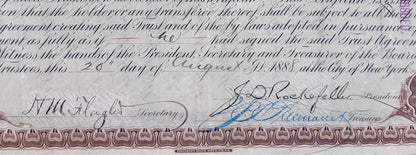 that the holder or any transferee thereof shall be subject to all the
Agreement creating said Trust and of the by-laws adopted in pursuance
as fully as if he had signed the said Trust Agreement
Witness the hands of the President Secretary and Treasurer of the Board
Trustees, this 20th day of August A.D. 1888 at the City of New York
H M Flagler Secretary
J D Rockefeller President
Treasurer